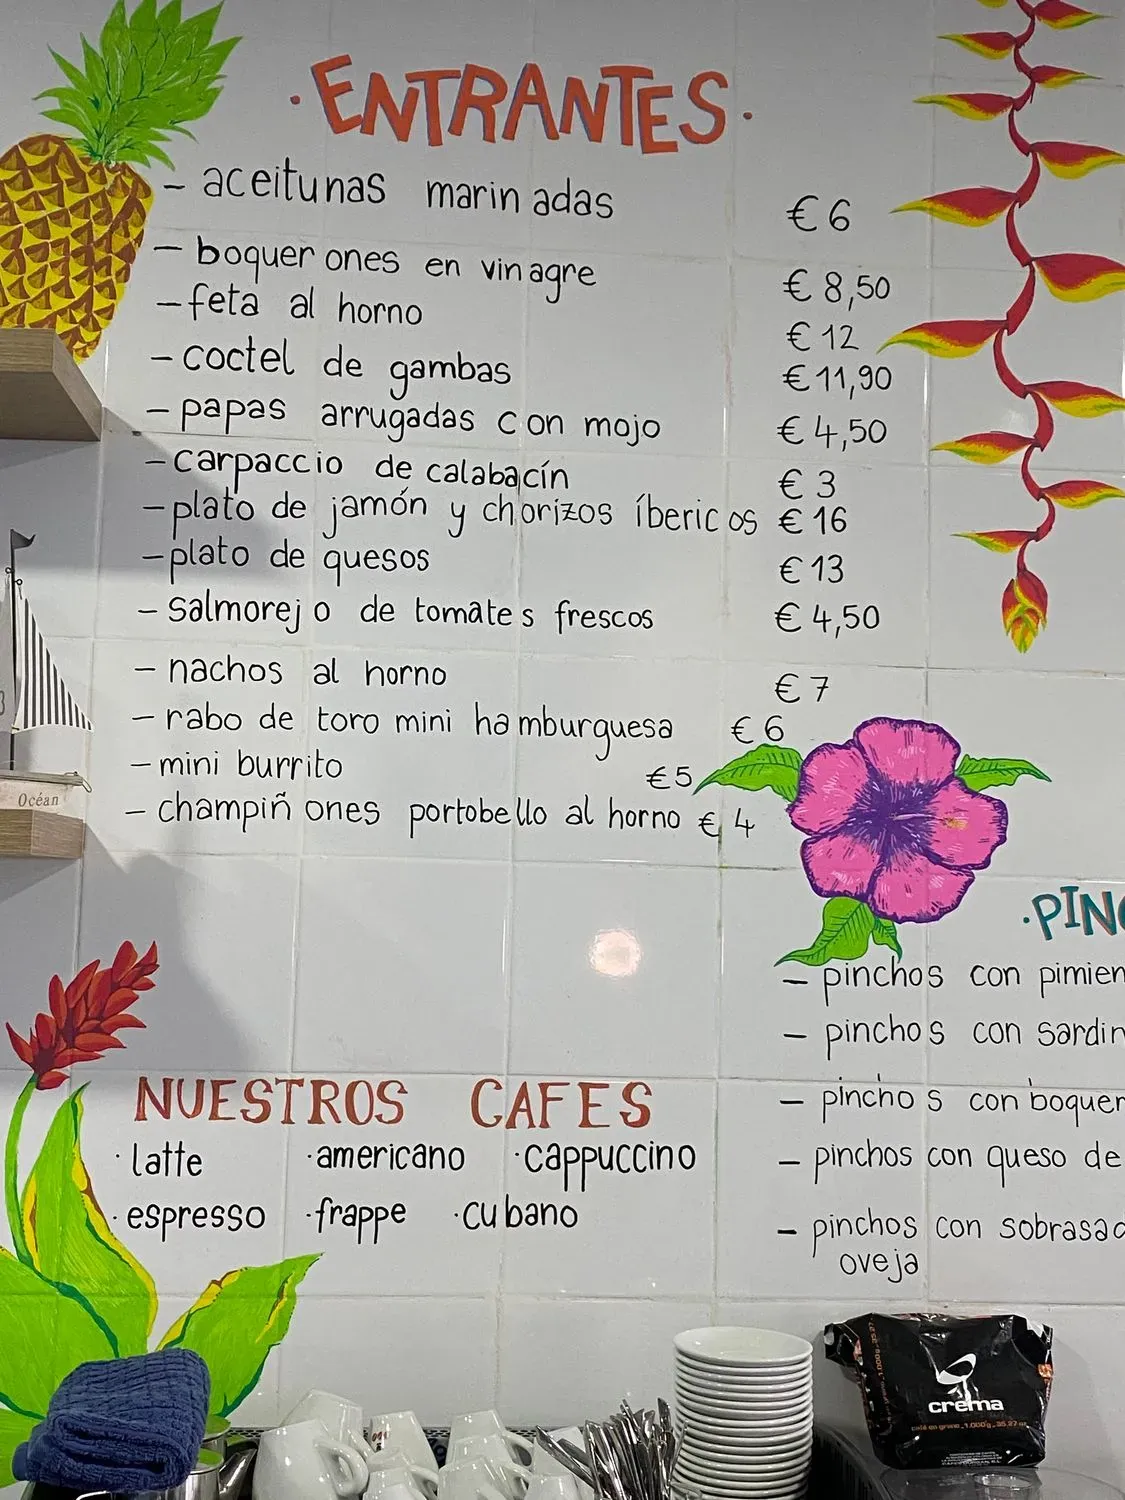 ·ENTRANTES·
- aceitunas marinadas €6
- boquerones en vinagre €8,50
- feta al horno €12
- coctel de gambas €11,90
- papas arrugadas con mojo €4,50
- carpaccio de calabacín €3
- plato de jamón y chorizos íbericos €16
- plato de quesos €13
- salmorejo de tomates frescos €4,50
- nachos al horno €7
- rabo de toro mini hamburguesa €6
- mini burrito €5
- champiñones portobello al horno €4
Océan
·PINC
- pinchos con pimien
- pinchos con sardin
- pinchos con boquer
- pinchos con queso de
- pinchos con sobrasad
oveja
NUESTROS CAFES
·latte ·americano ·cappuccino
·espresso ·frappe ·cubano
crema
café en grano 1.000g 35.27 oz